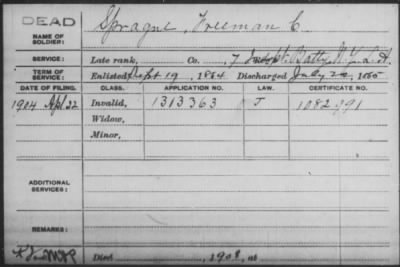 DEAD
NAME OF SOLDIER: Sprague, Freeman C.
SERVICE: Late rank, Co. 7 Indpt. Batty. N.Y. L.A.
TERM OF SERVICE: Enlisted Sept 19, 1864 Discharged July 22, 1865
DATE OF FILING. CLASS. APPLICATION NO. LAW. CERTIFICATE NO.
1904 Apl 22 Invalid, 1313363 J 1082991
Widow,
Minor,
ADDITIONAL SERVICES:
REMARKS:
Died 1908, at